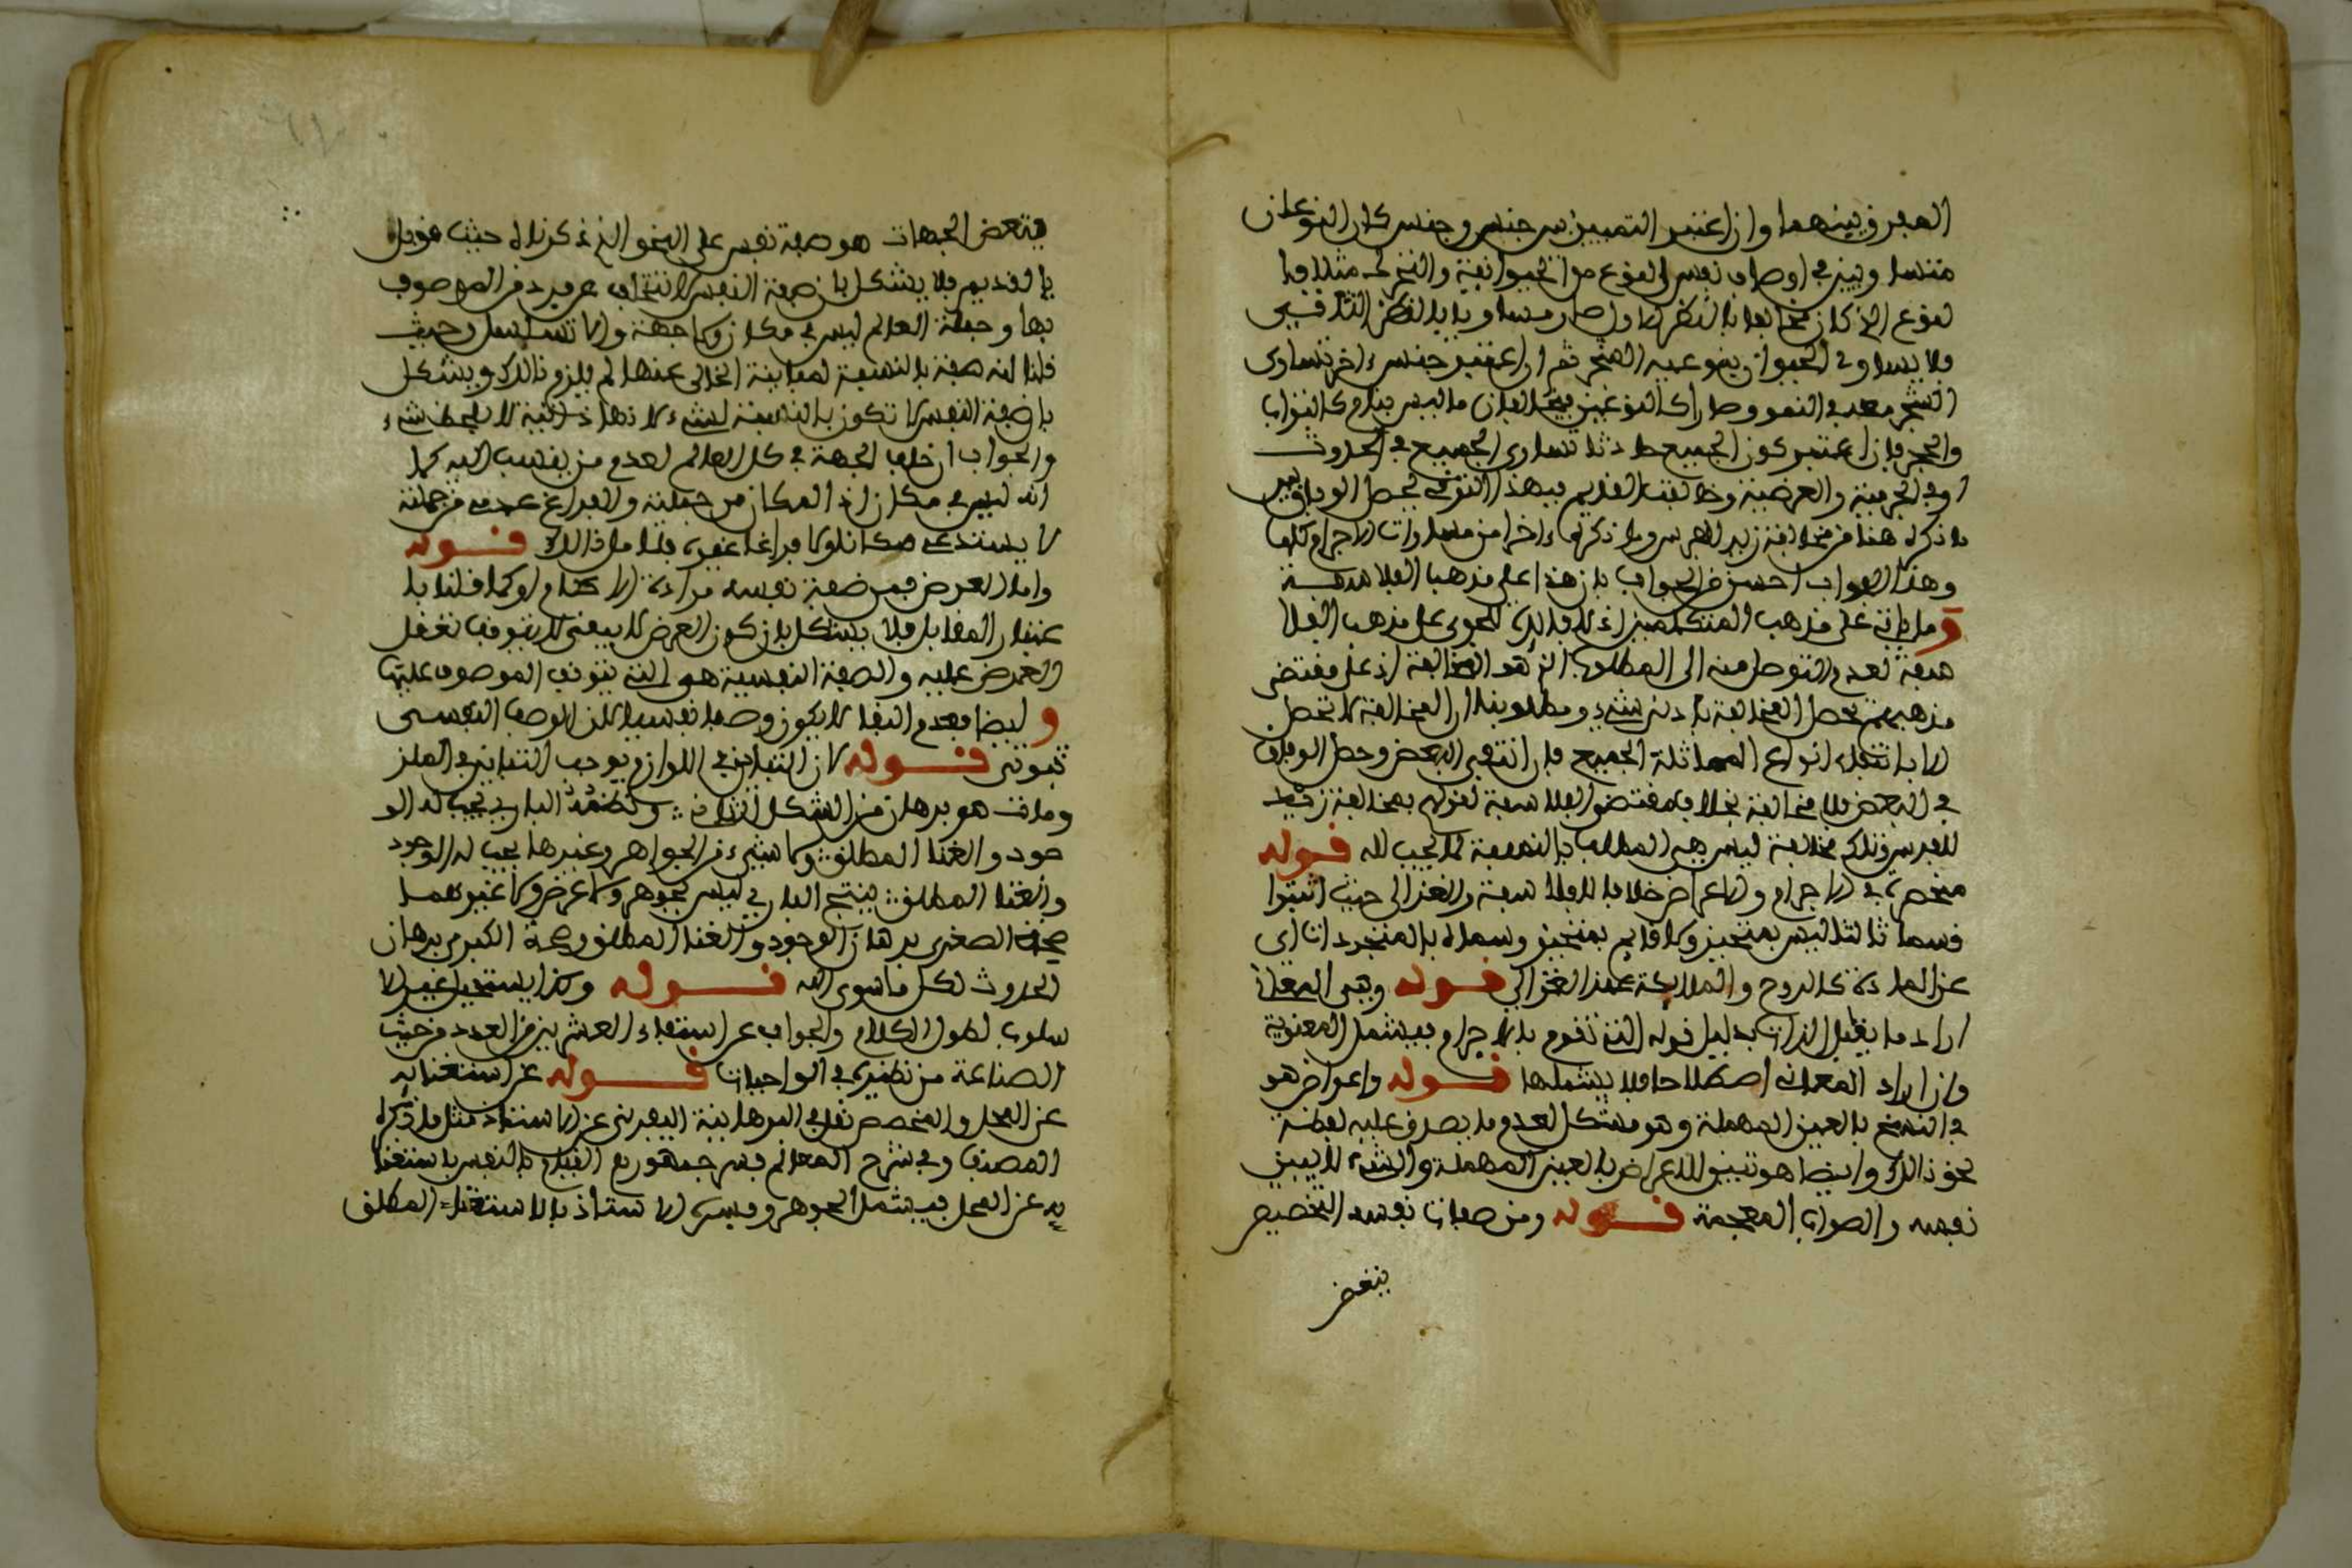 الفرق بينهما وان اعتبر التمييز بين جنس وجنس كان النوعان
متساويين في اوصاف نفس النوع من الحيوانية والتحرك مثلا فما
لنوع الذي كان مخالفا بالنظر الاول صار مساويا بالنظر الثاني
فلا يساوي الحيوان بنوعيه الشجر ثم ان اعتبر جنس ءاخر تساوى
الشجر معه في النمو وصارا كالنوعين يخالفان ما ليس بنام كالتراب
والحجر فان اعتبر كون الجميع حادثا تساوى الجميع في الحدوث
او في الجرمية والعرضية وخالفت القديم فبهذا التوفي يحصل الوفاق بين
ما ذكره هنا من مخالفة زيد للفرس وما ذكره ءاخرا من مساوات الاجرام كلها
وهذا الجواب احسن من الجواب بان هذا على مذهب الفلاسفة
وما ياتي على مذهب المتكلمين اذ لا فايدة للجري على مذهب الفلا
سفة لعدم التوصل منه الى المطلوب الذي هو المخالفة اذ على مقتضى
مذهبهم تحصل المخالفة بادنى شيء ومطلوبنا ان المخالفة لا تحصل
الا بانتفاء انواع المماثلة الجميع فان انتفى البعض وحصل الوفاق
في البعض فلا مخالفة بخلاف مقتضى الفلاسفة لقولهم بمخالفة زيد
للفرس وتلكم مخالفة ليس هي المطلب بالنسبة لما يجب لله قوله
منحصر في الاجرام والاعراض خلافا للفلاسفة والغزالي حيث اثبتوا
قسما ثالثا ليس بمتحيز ولا قايم بمتحيز وسماه بالمتجردات اي
عن المادة كالروح والملايكة عند الغزالي قوله وهي المعاني
اراد ما يقابل الذات بدليل قوله التي تقوم بالاجرام فيشمل المعنوية
وان اراد المعاني اصطلاحا فلا يشملها قوله واعراض هو
في النسخ بالعين المهملة وهو مشكل لعدم ما يصدق عليه لفظة
نحو ذالك وايضا هو تبيين للاعراض بالعين المهملة والشيء لا يبين
نفسه والصواب المعجمة قوله ومن صفات نفسه التخصيص
ببعض
ببعض الجهات هو صفة نفس على النحو الذي ذكرناه حيث قوبل
بالقديم فلا يشكل بان صفة النفس لا تنتفي عن فرد من الموصوف
بها وجملة العالم ليس في مكان ولا جهة والا تسلسل وحيث
قلنا انه صفة بالنسبة لمباينة الخالق عنها لم يلزم ذالك ويشكل
بان صفة النفس لا تكون بالنسبة لشيء لانها ذاتية لا بلحظ شيء
والجواب ان خلف الجهة في كل العالم لعدم من ينسب اليه كما
انه ليس في مكان اذ المكان من جملته والفراغ عدم من جملته
لا يستدعي مكانا ولا فراغا غيره فتامل ذالك قوله
واما العرض فمن صفة نفسه مرادة الاحكام او كما قلنا با
عتبار المقابل فلا يشكل بان كون العرض لا يبقى لا يتوقف تعقل
العرض عليه والصفة النفسية هي التي يتوقف الموصوف عليها
وايضا فعدم البقا لا يكون وصفا نفسيا لان الوصف النفسي
ثبوتي قوله لان التباين في اللوازم يوجب التباين في الملز
ومات هو برهان من الشكل الثاني ∴ ونظمه الباري يجب له الو
جود والغنا المطلق ∴ ولا شيء من الجواهر وغيرها يجب له الوجود
والغنا المطلق ∴ ينتج الباري ليس بجوهر ولا عرض ولا غيرهما
صحت الصغرى برهان الوجود والغنا المطلق وصحة الكبرى برهان
الحدوث لكل ما سوى الله قوله وكذا يستحيل غير الا
سلوب لطول الكلام والجواب عن استيفاء العشرين من العدد من حيث
الصناعة من نظيره في الواجبات قوله عن استغنائه
عن المحل والمخصص نقل في البرهانية اليفرني عن الاستاذ مثل ما ذكره
المصنف وفي شرح المعالم فسر جمهورهم القيام بالنفس باستغنا
يه عن المحل فيشمل الجوهر وفسره الاستاذ بالاستغناء المطلق